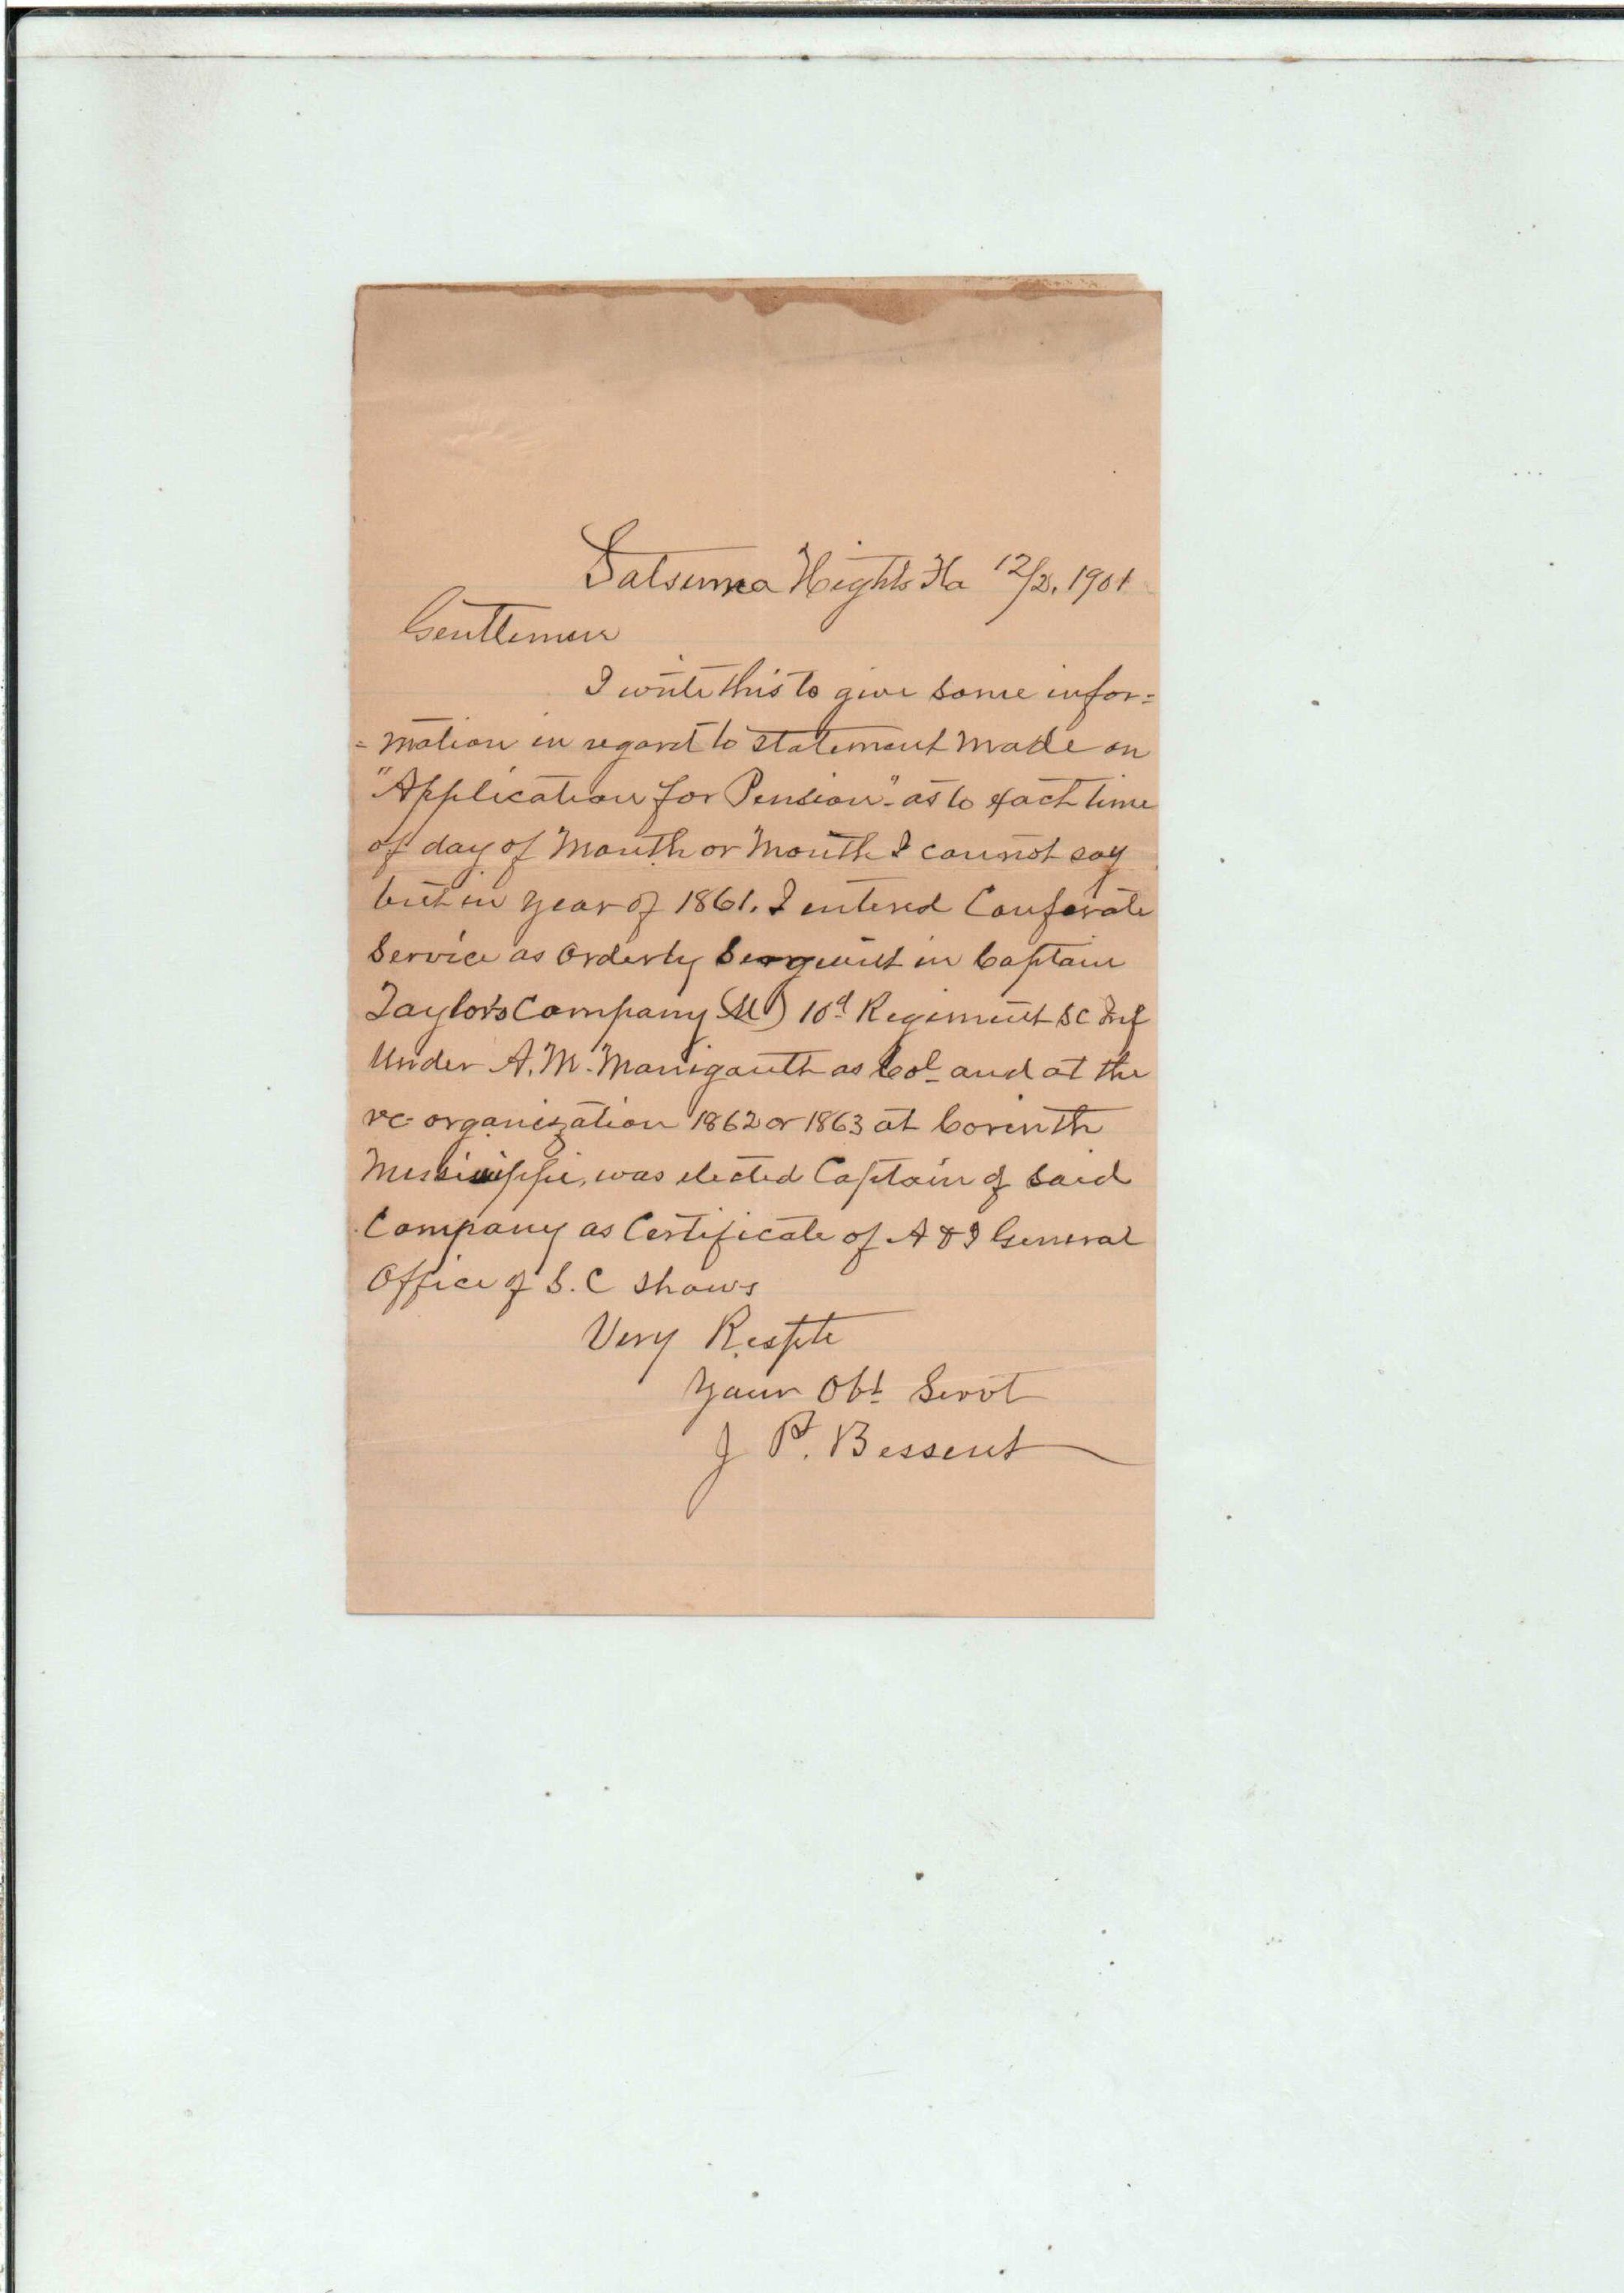 Satsuma Hights Fla 12/2, 1901
Gentlemen
I write this to give some infor=
=mation in regard to statement made on
"Application for Pension" as to exact time
of day of Month or Month I cannot say
but in year of 1861. I entered Conferate
Service as Orderly Sergeint in Captain
Taylors Company 10d Regiment SC Inf
Under A. M. Manigault as Col and at the
re-organization 1862 or 1863 at Corinth
Mississippi, was elected Captain of said
Company as Certificate of A & I General
Office of S. C shows
Very Respte
Your Obt Servt
J P. Bessent